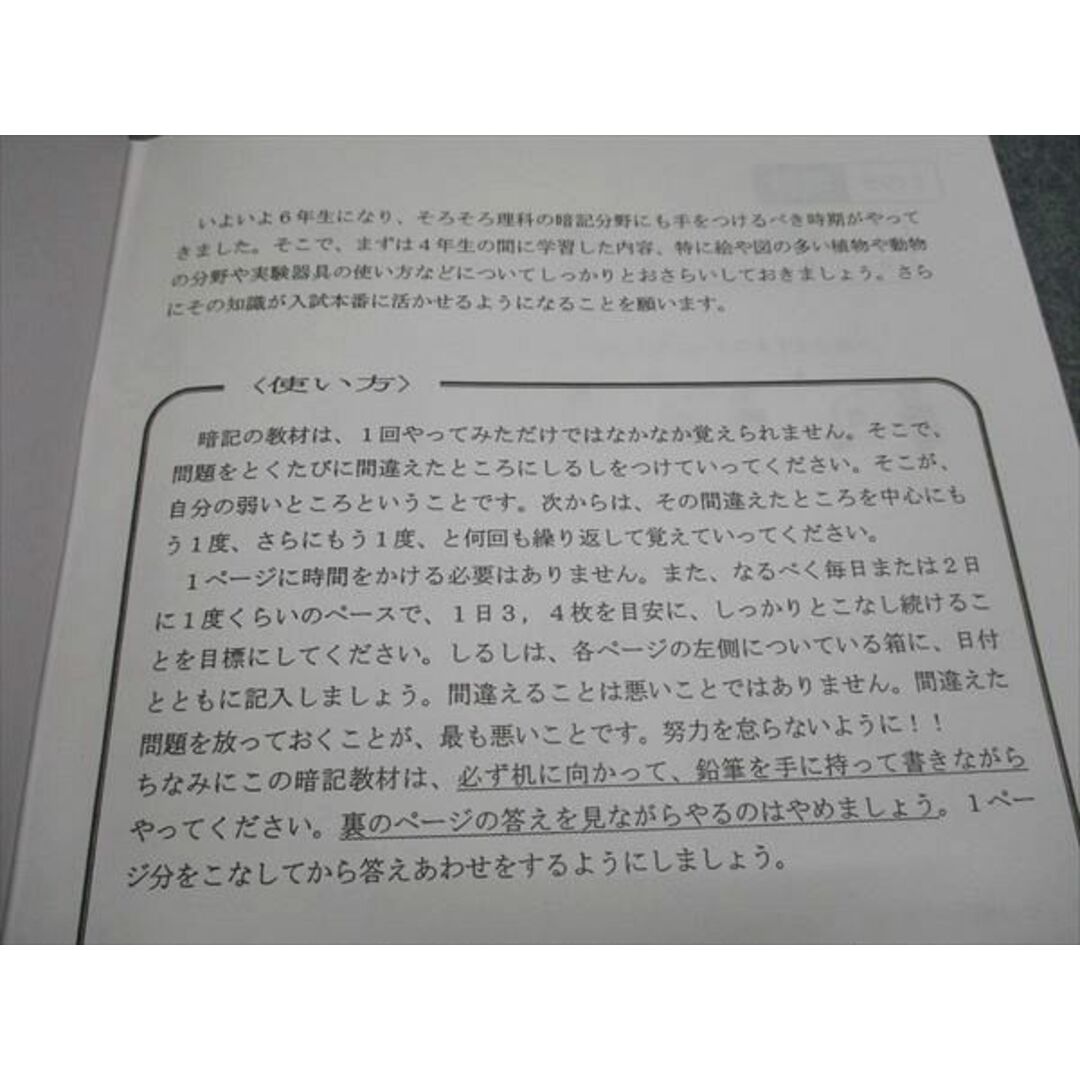 いよいよ6年生になり、そろそろ理科の暗記分野にも手をつけるべき時期がやって
きました。そこで、まずは4年生の間に学習した内容、特に絵や図の多い植物や動物
の分野や実験器具の使い方などについてしっかりとおさらいしておきましょう。さら
にその知識が入試本番に活かせるようになることを願います。
〈使い方〉
暗記の教材は、1回やってみただけではなかなか覚えられません。そこで、
問題をとくたびに間違えたところにしるしをつけていってください。そこが、
自分の弱いところということです。次からは、その間違えたところを中心にも
う1度、さらにもう1度、と何回も繰り返して覚えていってください。
1ページに時間をかける必要はありません。また、なるべく毎日または2日
に1度くらいのペースで、1日3,4枚を目安に、しっかりとこなし続けるこ
とを目標にしてください。しるしは、各ページの左側についている箱に、日付
とともに記入しましょう。間違えることは悪いことではありません。間違えた
問題を放っておくことが、最も悪いことです。努力を怠らないように!!
ちなみにこの暗記教材は、必ず机に向かって、鉛筆を手に持って書きながら
やってください。裏のページの答えを見ながらやるのはやめましょう。1ペー
ジ分をこなしてから答えあわせをするようにしましょう。